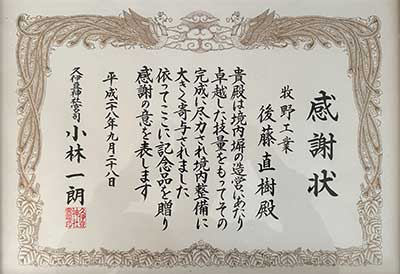 感謝状
牧野工業
後藤直樹殿
貴殿は境内塀の造営にあたり
卓越した技量をもってその
完成に尽力され境内整備に
大きく寄与されました
依ってここに記念品を贈り
感謝の意を表します
平成二十八年九月二十八日
久伊豆神社宮司
小林一朗